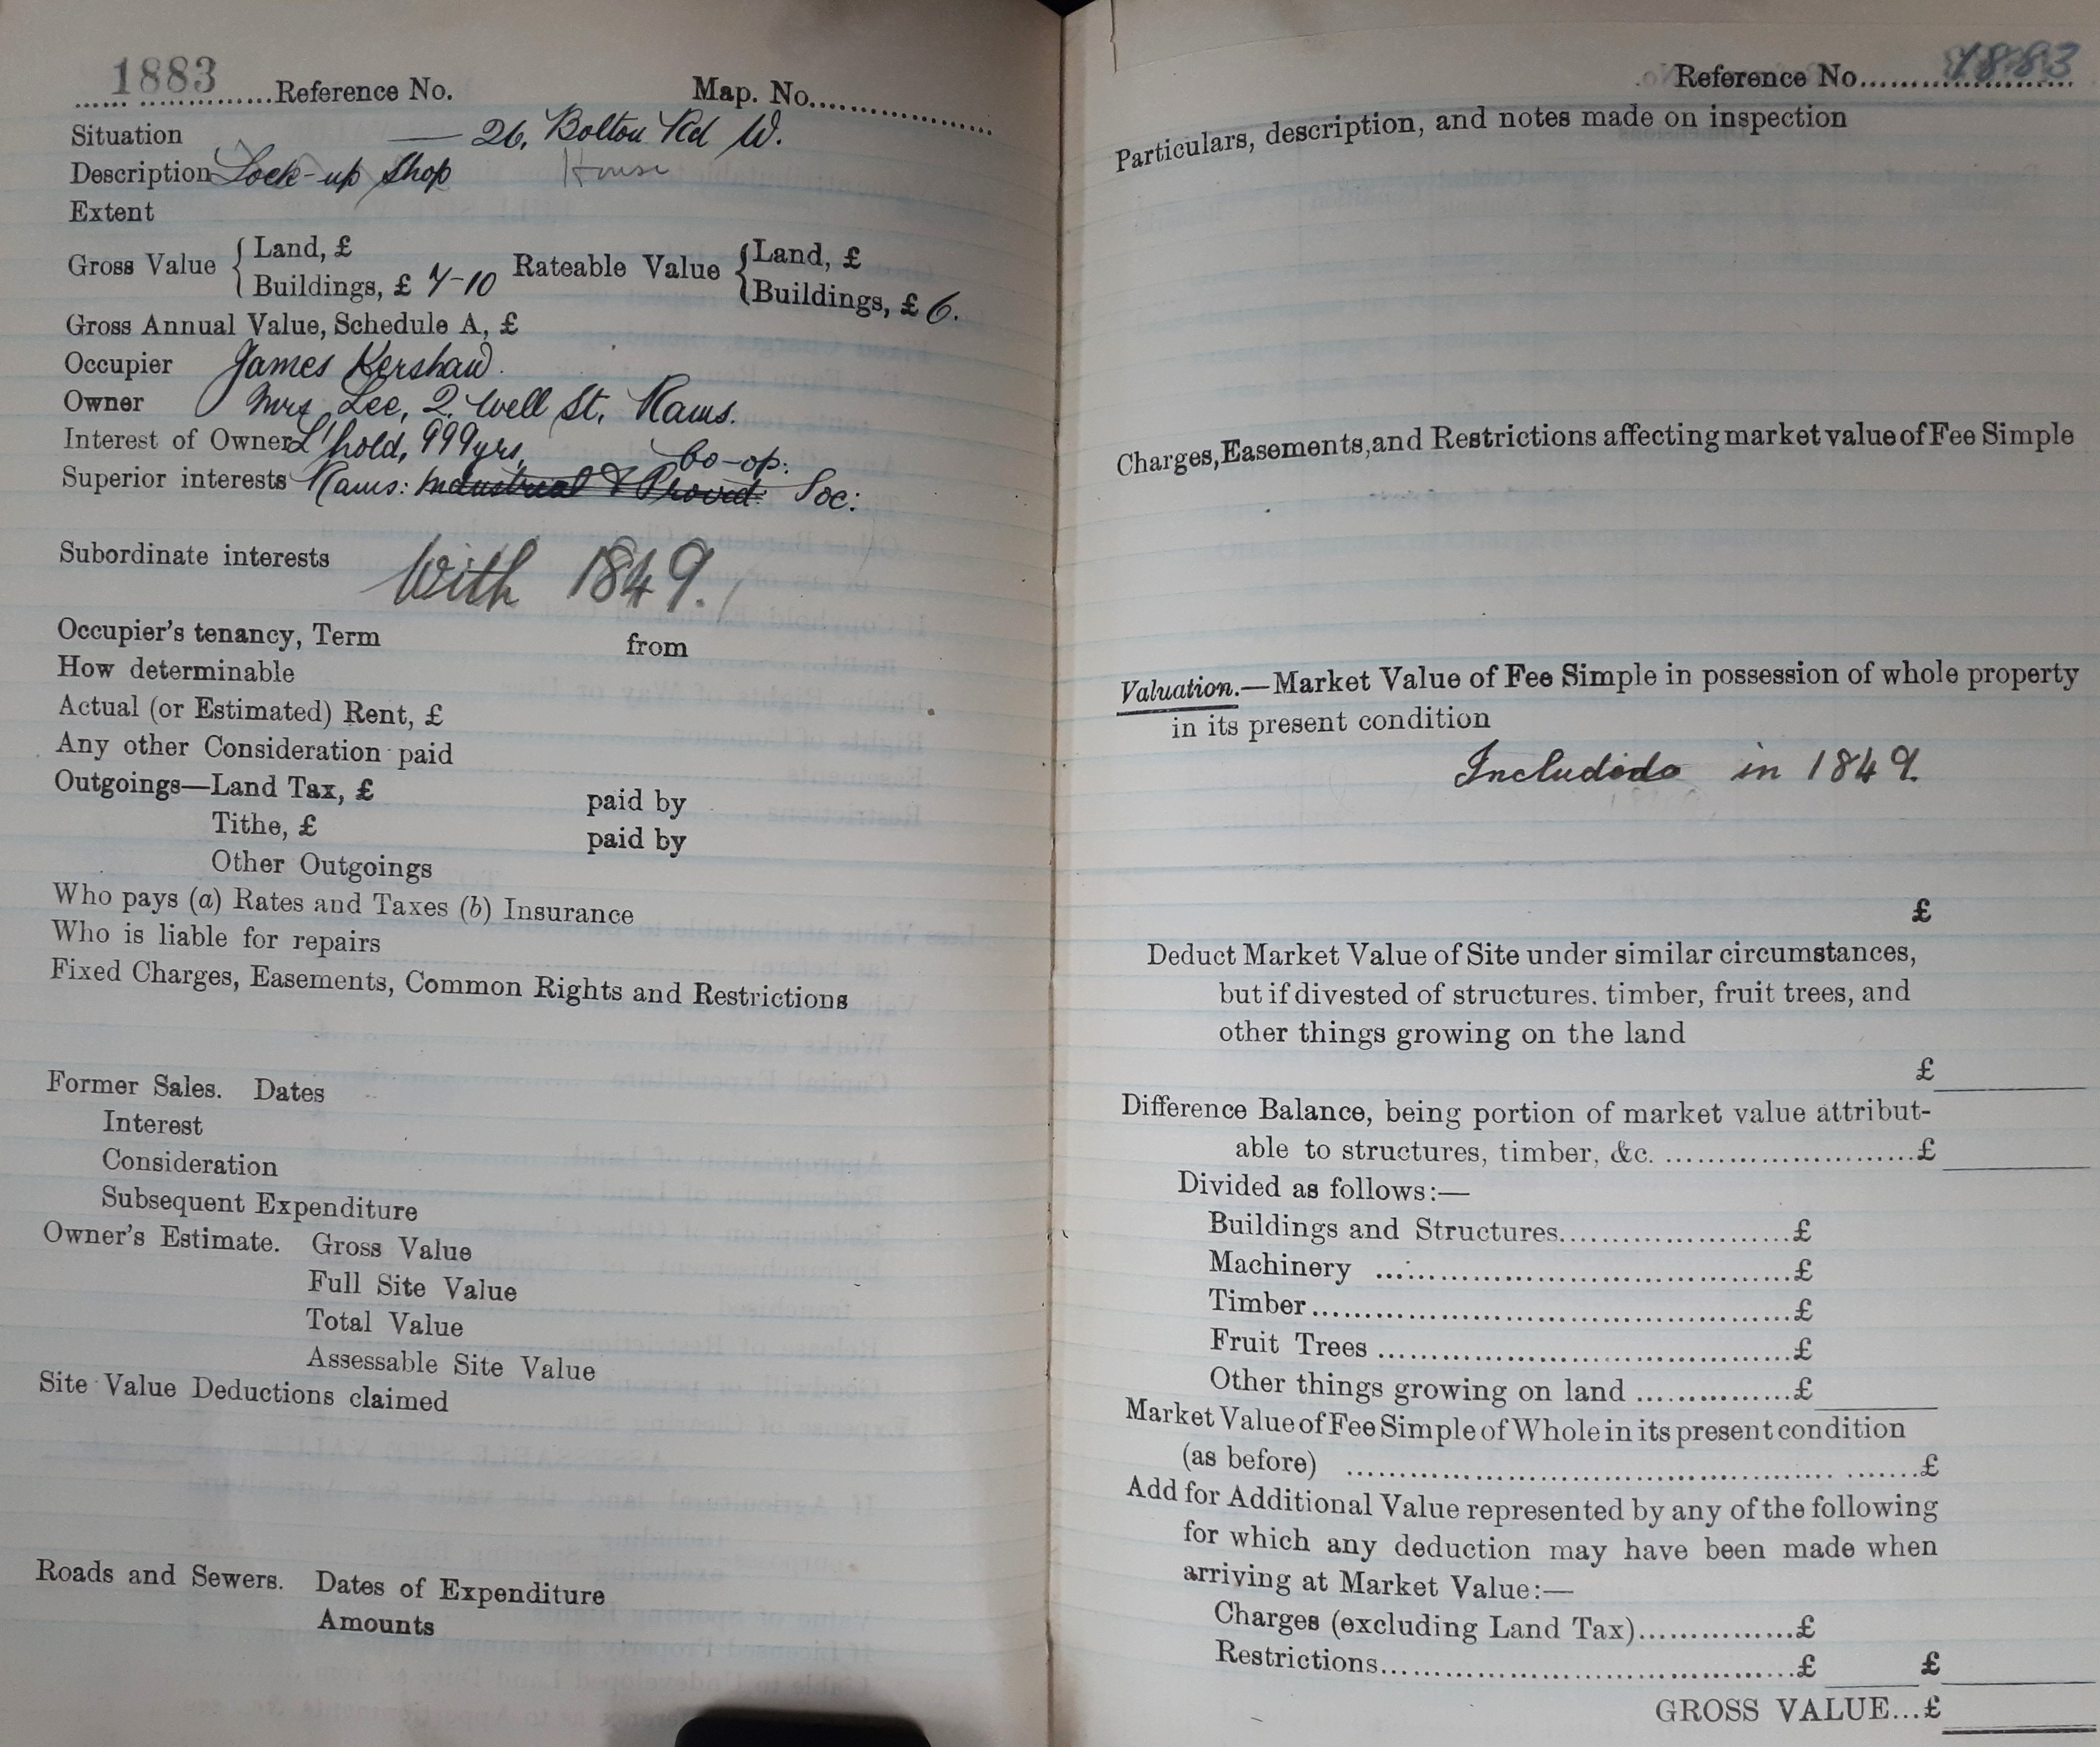 1883 Reference No. Map. No.
Situation — 26, Bolton Rd W.
Description Lock-up Shop House
Extent
Gross Value { Land, £ Rateable Value { Land, £
Buildings, £ 7-10 Buildings, £ 6.
Gross Annual Value, Schedule A, £
Occupier James Kershaw.
Owner Mrs Lee, 2. Well St, Rams.
Interest of Owner L'hold, 999yrs,
Co-op:
Superior interests Rams: Industrial & Provid: Soc:
Subordinate interests With 1849.
Occupier's tenancy, Term from
How determinable
Actual (or Estimated) Rent, £
Any other Consideration paid
Outgoings—Land Tax, £ paid by
Tithe, £ paid by
Other Outgoings
Who pays (a) Rates and Taxes (b) Insurance
Who is liable for repairs
Fixed Charges, Easements, Common Rights and Restrictions
Former Sales. Dates
Interest
Consideration
Subsequent Expenditure
Owner's Estimate. Gross Value
Full Site Value
Total Value
Assessable Site Value
Site Value Deductions claimed
Roads and Sewers. Dates of Expenditure
Amounts
Reference No. 1883
Particulars, description, and notes made on inspection
Charges, Easements, and Restrictions affecting market value of Fee Simple
Valuation.—Market Value of Fee Simple in possession of whole property
in its present condition
Included in 1849.
£
Deduct Market Value of Site under similar circumstances,
but if divested of structures. timber, fruit trees, and
other things growing on the land
£
Difference Balance, being portion of market value attribut-
able to structures, timber, &c. £
Divided as follows:—
Buildings and Structures £
Machinery £
Timber £
Fruit Trees £
Other things growing on land £
Market Value of Fee Simple of Whole in its present condition
(as before) £
Add for Additional Value represented by any of the following
for which any deduction may have been made when
arriving at Market Value:—
Charges (excluding Land Tax) £
Restrictions £ £
GROSS VALUE...£